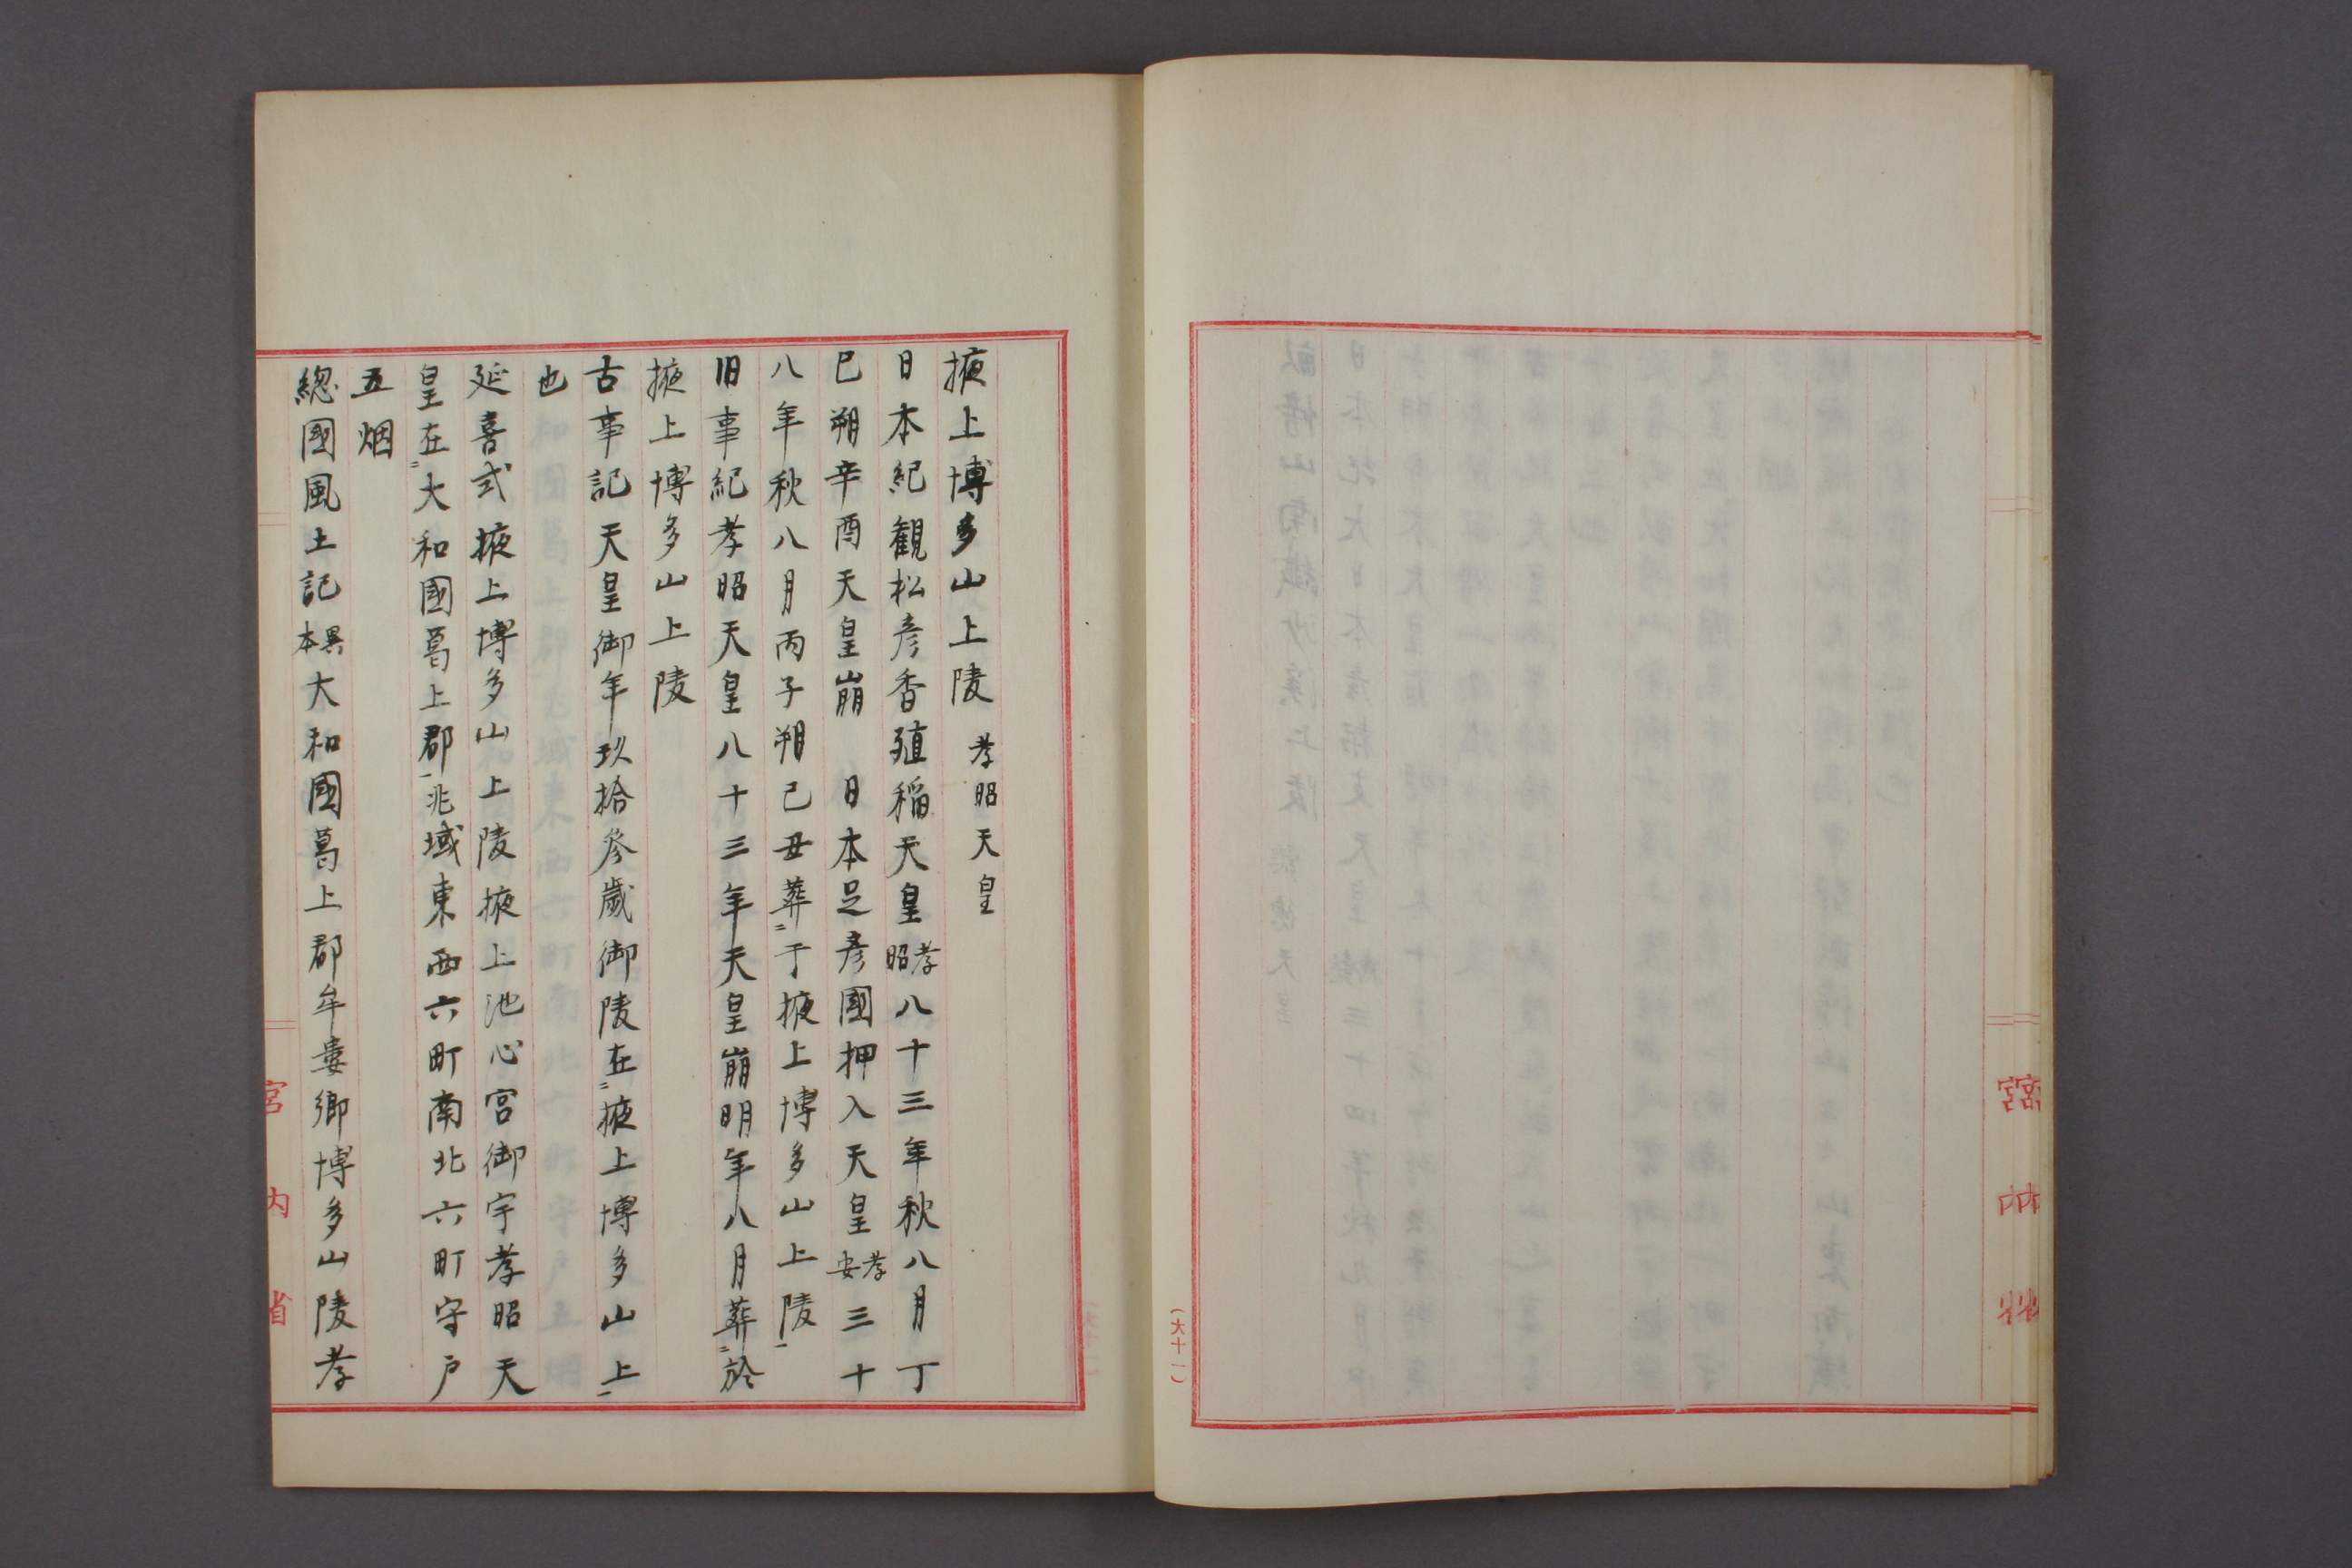 掖上博多山上陵 孝昭天皇
日本紀観松彦香殖稲天皇孝昭八十三年秋八月丁
巳朔辛酉天皇崩 日本足彦國押入天皇孝安三十
八年秋八月丙子朔己丑葬于掖上博多山上陵
旧事紀孝昭天皇八十三年年天皇崩明年八月葬於
掖上博多山上陵
古事記天皇御年玖拾参歳御陵在掖上博多山上
也
延喜式掖上博多山上陵掖上池心宮御宇孝昭天
皇在大和國葛上郡兆域東西六町南北六町守戸
五烟
總國風土記異本大和國葛上郡牟婁郷博多山陵孝
宮内省
(大十一)